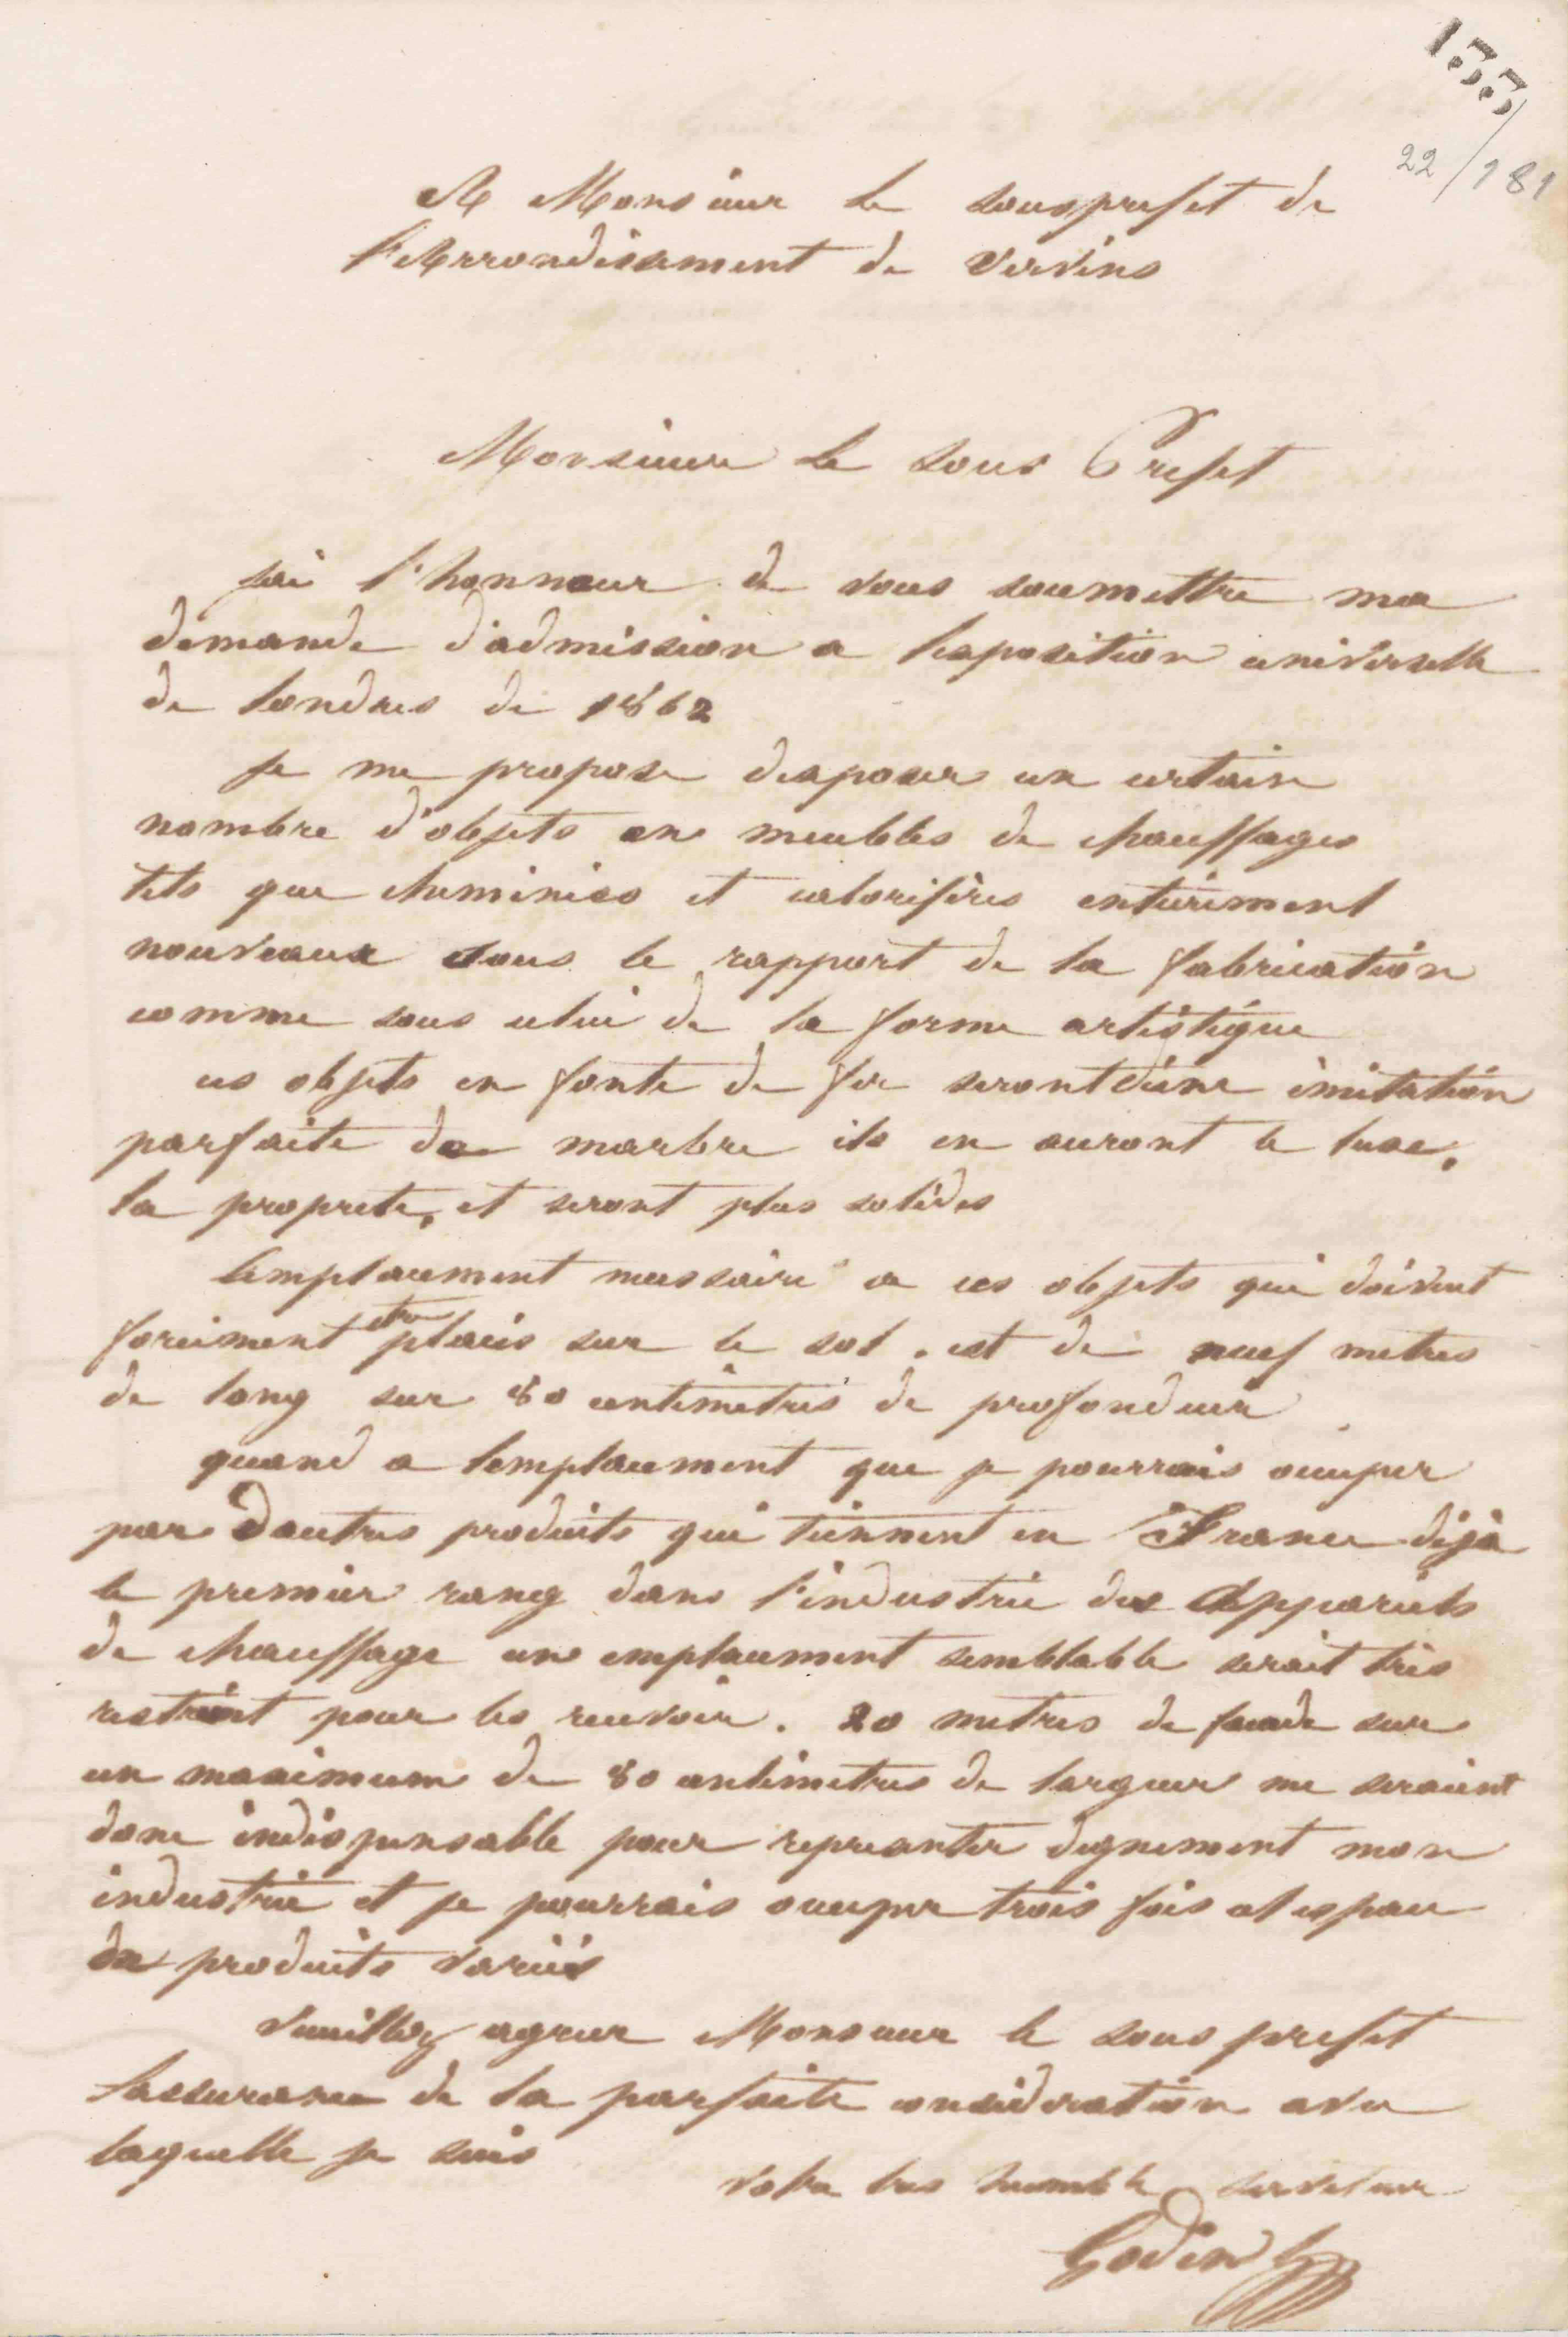 155
22/181
A Monsieur le sousprefet de
l'Arrondissement de Vervins
Monsieur le sous Prefet
j'ai l'honneur de vous soumettre ma
demande d'admission a lexposition universelle
de londres de 1862
je me propose dexposer un certain
nombre d'objets en meubles de chauffages
tels que cheminées et calorifères entièrement
nouveaux sous le rapport de la fabrication
comme sous celui de la forme artistique
ces objets en fonte de fer seront d'une imitation
parfaite de marbre ils en auront le luxe,
la proprete, et seront plus solides
lemplacement necessaire a ces objets qui doivent
forcement etre placés sur le sol, est de neuf metres
de long sur 80 centimetres de profondeur
quand a lemplacement que je pourrais occuper
par dautres produits qui tiennent en France déjà
le premier rang dans l'industrie des appareils
de chauffage un emplacement semblable serait très
restreint pour les recevoir. 20 metres de facade sur
un maximum de 80 centimetres de largeur me seraient
donc indispensable pour represanter dignement mon
industrie et je pourrais occuper trois fois cet espace
de produits variés
Veuillez agreer Monsieur le sous prefet
lassurance de la parfaite consideration avec
laquelle je suis
votre tres humble serviteur
Godin